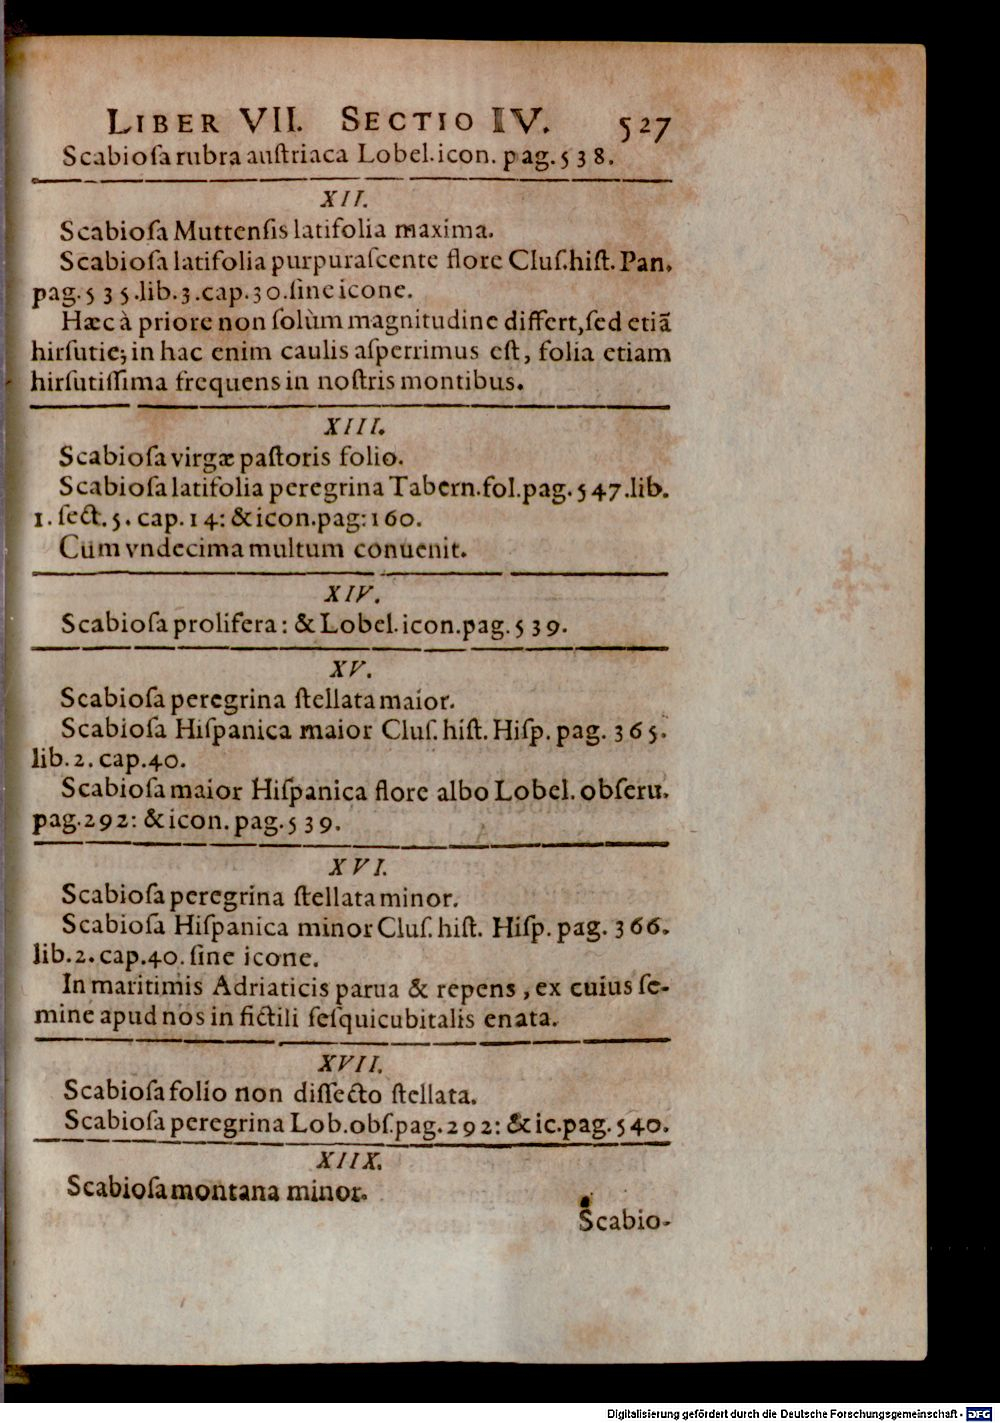 LIBER VII. SECTIO IV. 527
Scabioſa rubra auſtriaca Lobel. icon. pag. 538.
XII.
Scabioſa Muttenſis latifolia maxima.
Scabioſa latifolia purpuraſcente flore Cluſ. hiſt. Pan.
pag. 535. lib. 3. cap. 30. ſine icone.
Hæc à priore non ſolùm magnitudine differt, ſed etiã
hirſutie; in hac enim caulis aſperrimus eſt, folia etiam
hirſutiſſima frequens in noſtris montibus.
XIII.
Scabioſa virgæ paſtoris folio.
Scabioſa latifolia peregrina Tabern. fol. pag. 547. lib.
1. ſect. 5. cap. 14: & icon. pag: 160.
Cum vndecima multum conuenit.
XIV.
Scabioſa prolifera: & Lobel. icon. pag. 539.
XV.
Scabioſa peregrina ſtellata maior.
Scabioſa Hiſpanica maior Cluſ. hiſt. Hiſp. pag. 365.
lib. 2. cap. 40.
Scabioſa maior Hiſpanica flore albo Lobel. obſeru.
pag. 292: & icon. pag. 539.
XVI.
Scabioſa peregrina ſtellata minor.
Scabioſa Hiſpanica minor Cluſ. hiſt. Hiſp. pag. 366.
lib. 2. cap. 40. ſine icone.
In maritimis Adriaticis parua & repens, ex cuius ſe-
mine apud nos in fictili ſeſquicubitalis enata.
XVII.
Scabioſa folio non diſſecto ſtellata.
Scabioſa peregrina Lob. obſ. pag. 292: & ic. pag. 540.
XIIX.
Scabioſa montana minor.
Scabio-
Digitalisierung gefördert durch die Deutsche Forschungsgemeinschaft - DFG